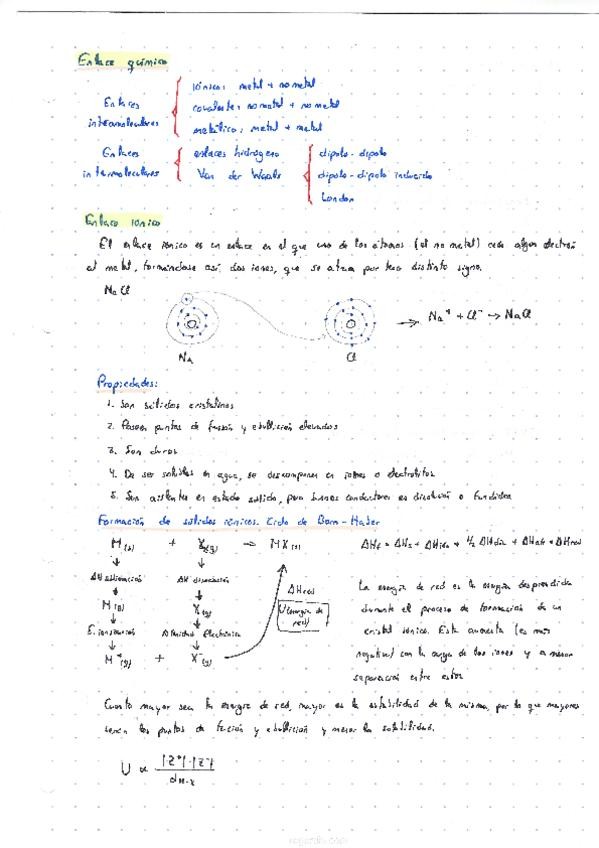 Enlace químico
Enlaces intramoleculares
iónico: metal + no metal
covalente: no metal + no metal
metálico: metal + metal
Enlaces intermoleculares
enlaces hidrógeno
Van der Waals
dipolo - dipolo
dipolo - dipolo inducido
London
Enlace iónico
El enlace iónico es un enlace en el que uno de los átomos (el no metal) cede algún electrón
al metal, formándose así dos iones, que se atraen por tener distinto signo.
NaCl
Na
Cl
→ Na⁺ + Cl⁻ → NaCl
Propiedades:
1. Son sólidos cristalinos
2. Poseen puntos de fusión y ebullición elevados
3. Son duros
4. De ser solubles en agua, se descomponen en iones o electrolitos
5. Son aislantes en estado sólido, pero buenos conductores en disolución o fundidos
Formación de sólidos iónicos. Ciclo de Born-Haber
M(s) + X₂(g) → MX(s)
ΔHf = ΔHs + ΔHion + 1/2 ΔHdis + ΔHafi + ΔHred
ΔH sublimación
ΔH disociación
M(g)
X(g)
ΔHred
U (energía de red)
E. ionización
Afinidad electrónica
M⁺(g) + X⁻(g)
La energía de red es la energía desprendida
durante el proceso de formación de un
cristal iónico. Esta aumenta (es más
negativa) con la carga de los iones y a menor
separación entre estos
Cuanto mayor sea la energía de red, mayor es la estabilidad de la misma, por lo que mayores
serán los puntos de fusión y ebullición y menor la solubilidad.
U ∝ |Z⁺|·|Z⁻| / dM-X